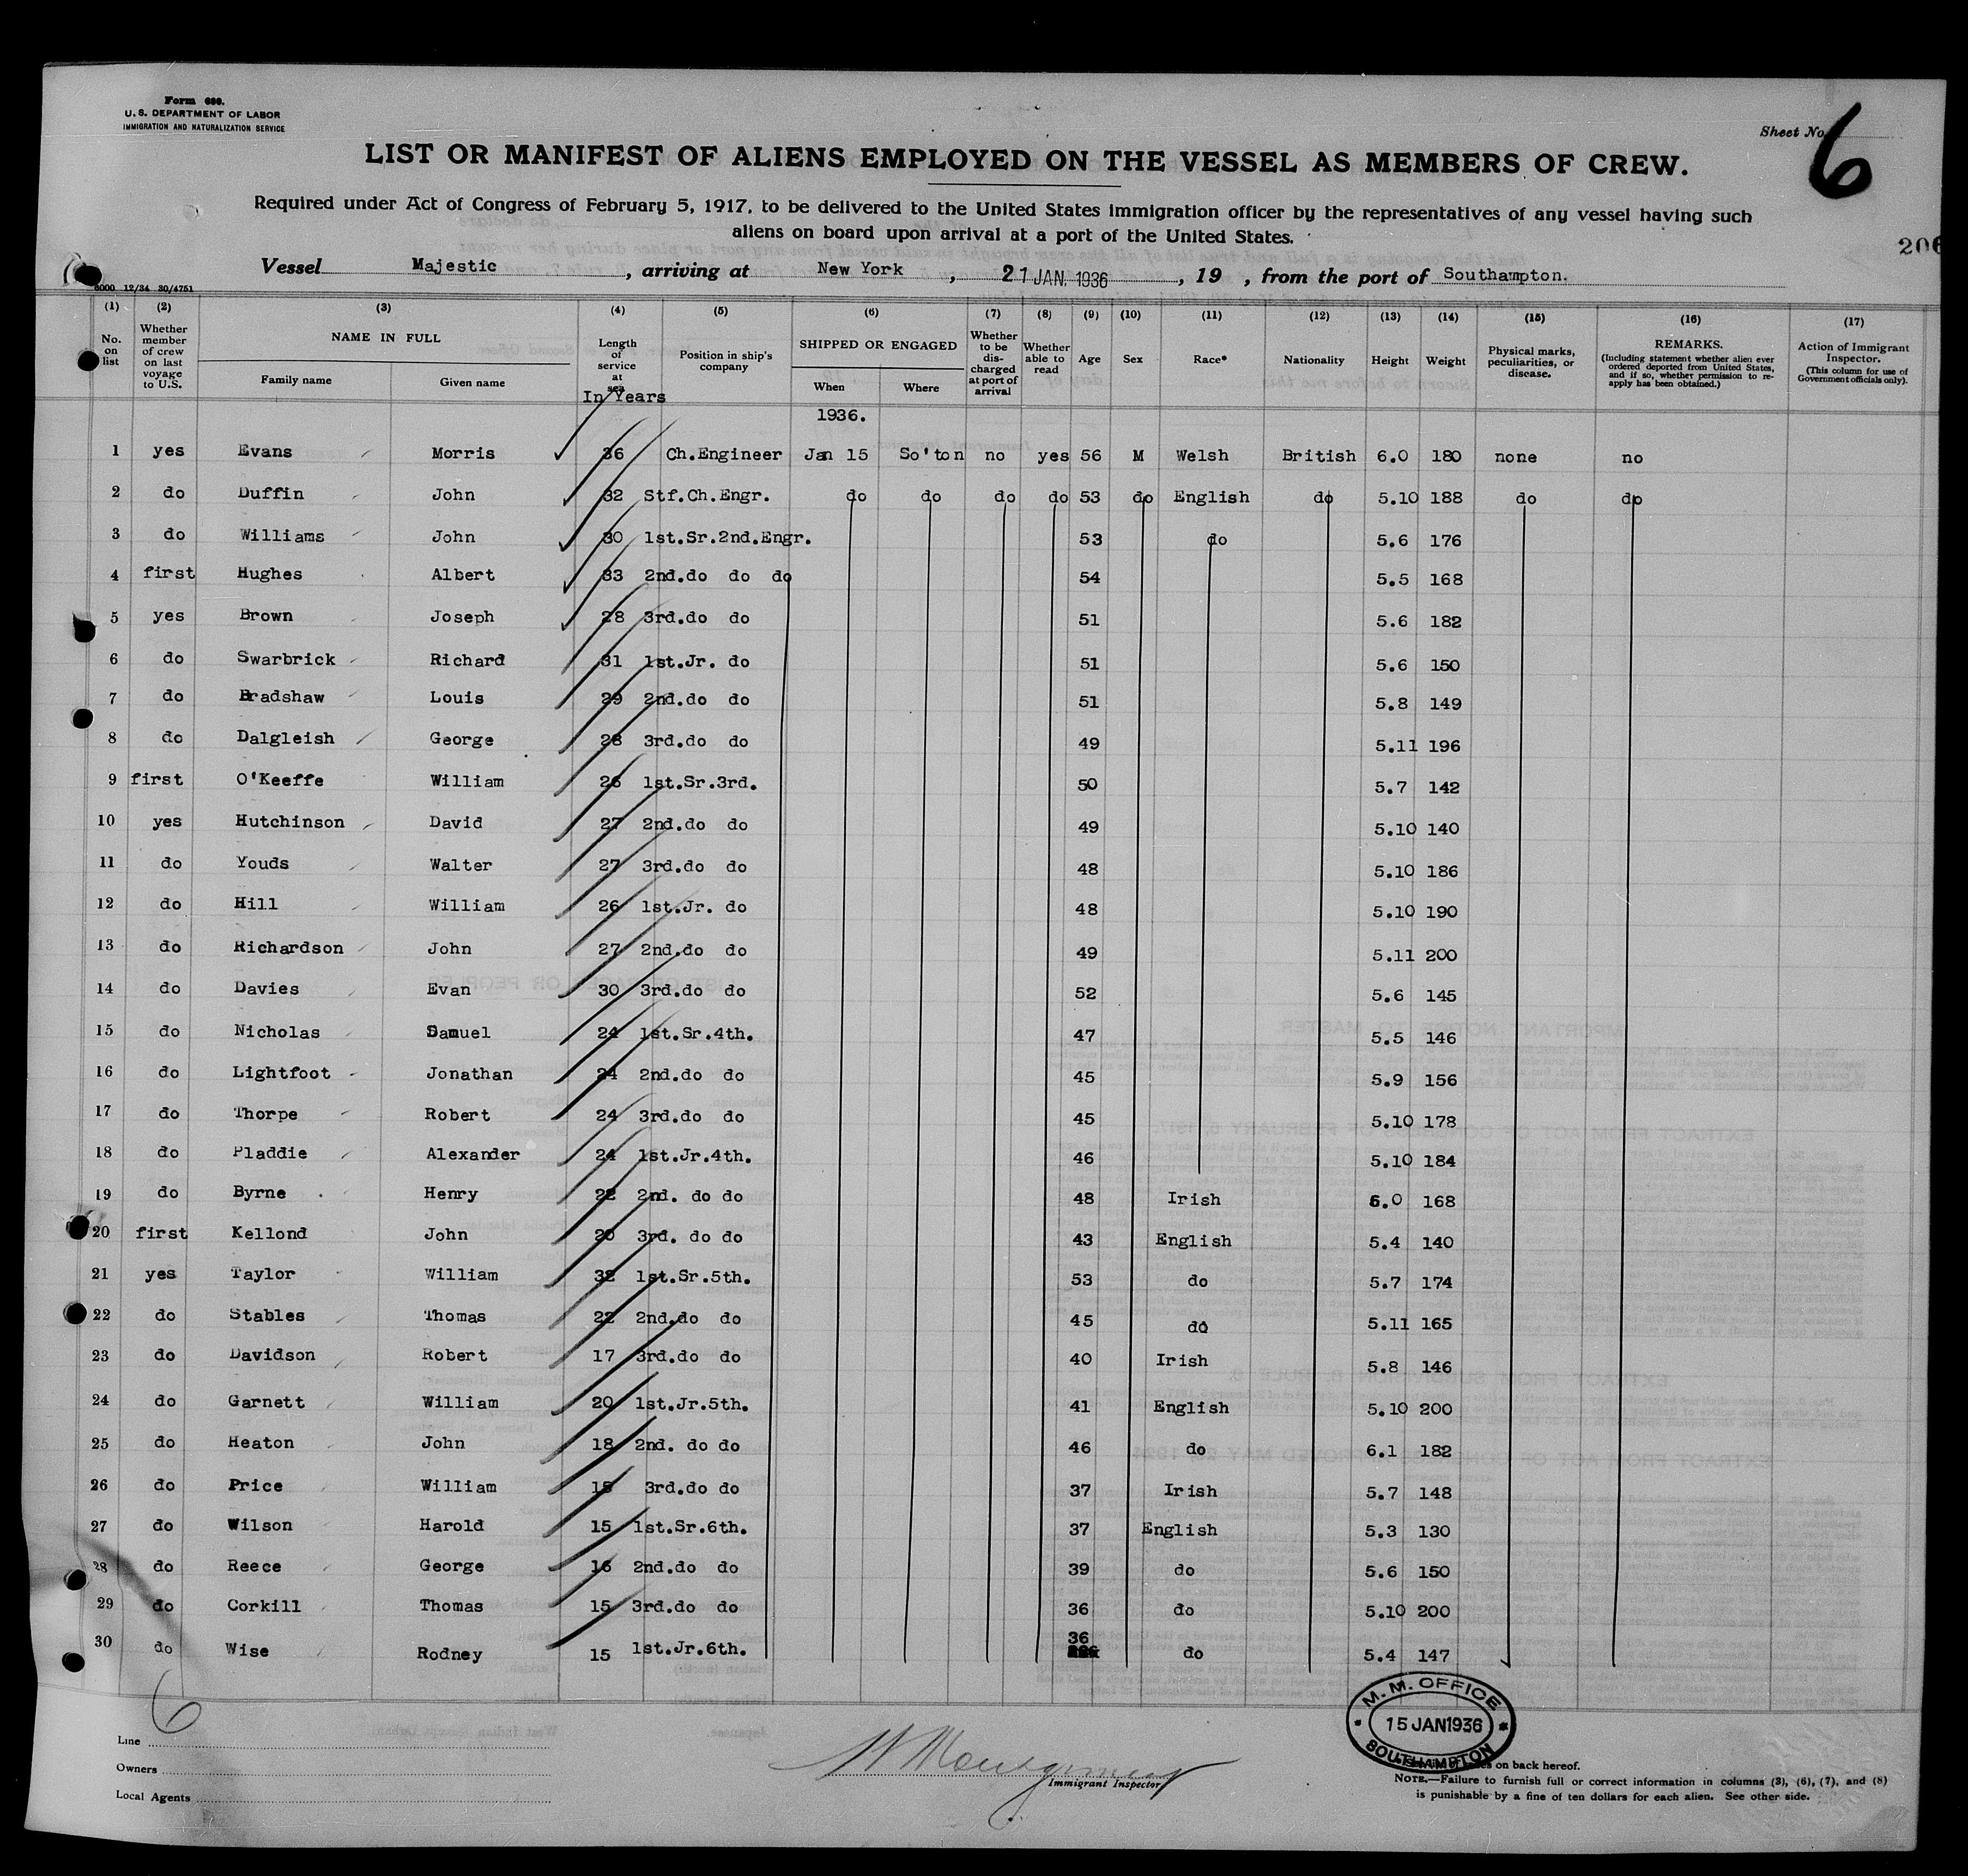 Form 680.
U. S. DEPARTMENT OF LABOR
IMMIGRATION AND NATURALIZATION SERVICE
Sheet No. 6
LIST OR MANIFEST OF ALIENS EMPLOYED ON THE VESSEL AS MEMBERS OF CREW.
Required under Act of Congress of February 5, 1917, to be delivered to the United States immigration officer by the representatives of any vessel having such
aliens on board upon arrival at a port of the United States.
206
Vessel Majestic , arriving at New York , 21 JAN. 1936 , 19 , from the port of Southampton.
6000 12/34 30/4751
(1) (2) (3) (4) (5) (6) (7) (8) (9) (10) (11) (12) (13) (14) (15) (16) (17)
No. on list Whether member of crew on last voyage to U.S. NAME IN FULL Family name Given name Length of service at sea In Years Position in ship's company SHIPPED OR ENGAGED When Where Whether to be discharged at port of arrival Whether able to read Age Sex Race* Nationality Height Weight Physical marks, peculiarities, or disease. REMARKS. (Including statement whether alien ever ordered deported from United States, and if so, whether permission to reapply has been obtained.) Action of Immigrant Inspector. (This column for use of Government officials only).
1936.
1 yes Evans Morris 36 Ch.Engineer Jan 15 So'ton no yes 56 M Welsh British 6.0 180 none no
2 do Duffin John 32 Stf.Ch.Engr. do do do do 53 do English do 5.10 188 do do
3 do Williams John 30 1st.Sr.2nd.Engr. 53 do 5.6 176
4 first Hughes Albert 33 2nd.do do do 54 5.5 168
5 yes Brown Joseph 28 3rd.do do 51 5.6 182
6 do Swarbrick Richard 31 1st.Jr. do 51 5.6 150
7 do Bradshaw Louis 29 2nd.do do 51 5.8 149
8 do Dalgleish George 28 3rd.do do 49 5.11 196
9 first O'Keeffe William 26 1st.Sr.3rd. 50 5.7 142
10 yes Hutchinson David 27 2nd.do do 49 5.10 140
11 do Youds Walter 27 3rd.do do 48 5.10 186
12 do Hill William 26 1st.Jr. do 48 5.10 190
13 do Richardson John 27 2nd.do do 49 5.11 200
14 do Davies Evan 30 3rd.do do 52 5.6 145
15 do Nicholas Samuel 24 1st.Sr.4th. 47 5.5 146
16 do Lightfoot Jonathan 24 2nd.do do 45 5.9 156
17 do Thorpe Robert 24 3rd.do do 45 5.10 178
18 do Pladdie Alexander 24 1st.Jr.4th. 46 5.10 184
19 do Byrne Henry 22 2nd. do do 48 Irish 6.0 168
20 first Kellond John 20 3rd. do do 43 English 5.4 140
21 yes Taylor William 32 1st.Sr.5th. 53 do 5.7 174
22 do Stables Thomas 22 2nd.do do 45 do 5.11 165
23 do Davidson Robert 17 3rd.do do 40 Irish 5.8 146
24 do Garnett William 20 1st.Jr.5th. 41 English 5.10 200
25 do Heaton John 18 2nd. do do 46 do 6.1 182
26 do Price William 15 3rd.do do 37 Irish 5.7 148
27 do Wilson Harold 15 1st.Sr.6th. 37 English 5.3 130
28 do Reece George 16 2nd.do do 39 do 5.6 150
29 do Corkill Thomas 15 3rd.do do 36 do 5.10 200
30 do Wise Rodney 15 1st.Jr.6th. 36 do 5.4 147
6
Line
Owners
Local Agents
Montgomery
Immigrant Inspector
M. M. OFFICE
15 JAN 1936
SOUTHAMPTON
on back hereof.
NOTE.—Failure to furnish full or correct information in columns (3), (6), (7), and (8)
is punishable by a fine of ten dollars for each alien. See other side.